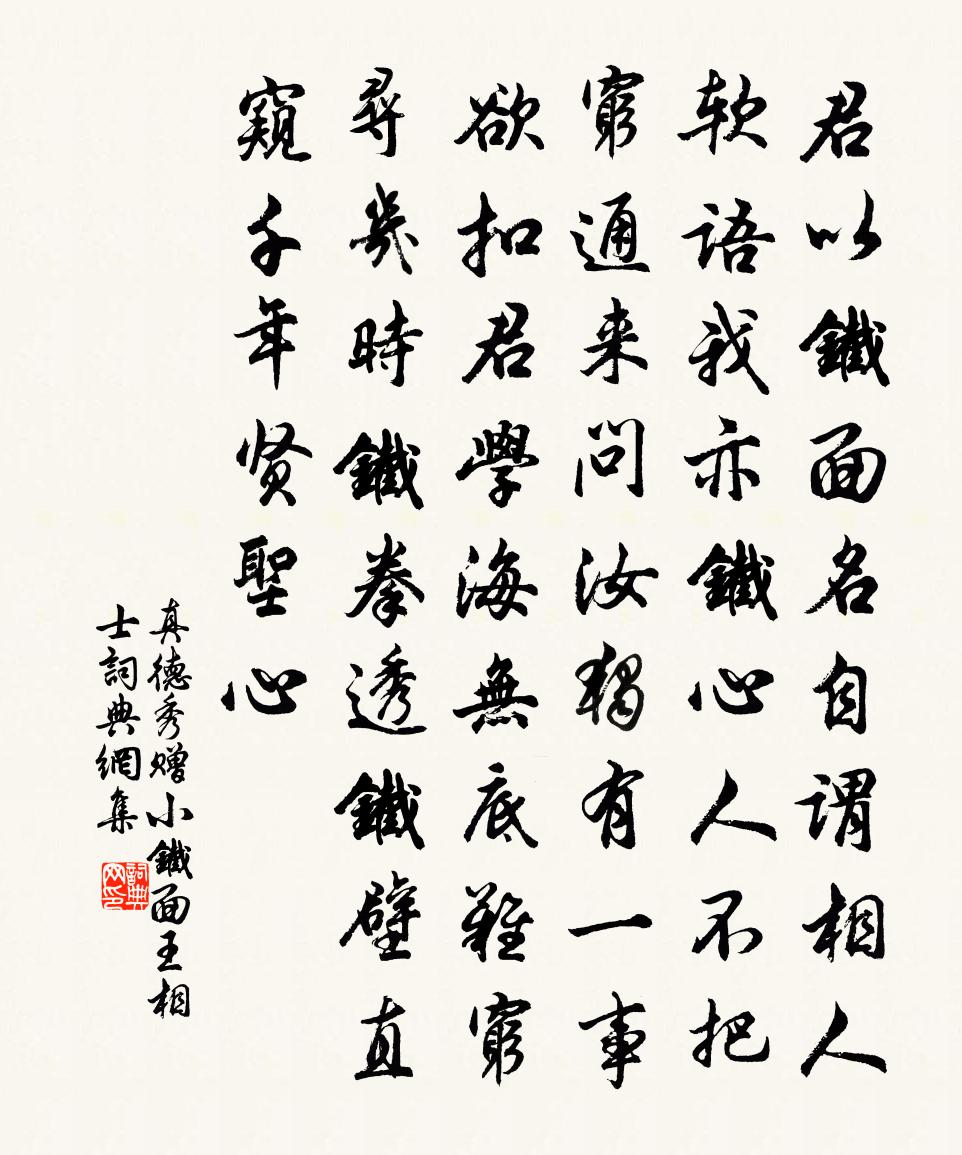 君以鐵面名自謂相人
軟語我亦鐵心人不把
窮通来問汝獨有一事
欲扣君學海無底難窮
尋幾時鐵拳透鐵壁直
窺千年贤聖心
真德秀赠小鐵面王相
士詞典網集
詞典网印